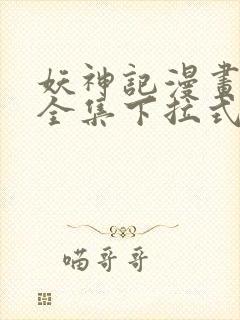 妖神記漫畫
全集下拉式
喵哥哥